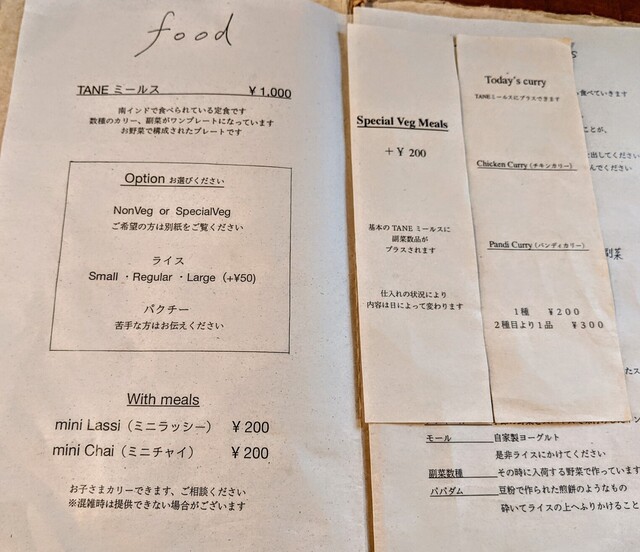 food
TANE ミールス ¥1,000
南インドで食べられている定食です
数種のカリー、副菜がワンプレートになっています
お野菜で構成されたプレートです
Option お選びください
NonVeg or SpecialVeg
ご希望の方は別紙をご覧ください
ライス
Small ・Regular ・Large (+¥50)
パクチー
苦手な方はお伝えください
With meals
mini Lassi（ミニラッシー） ¥200
mini Chai（ミニチャイ） ¥200
お子さまカリーできます、ご相談ください
※混雑時は提供できない場合がございます
Special Veg Meals
+¥ 200
基本の TANE ミールスに
副菜数品が
プラスされます
仕入れの状況により
内容は日によって変わります
Today's curry
TANEミールスにプラスできます
Chicken Curry (チキンカリー)
Pandi Curry (パンディカリー)
1種 ¥200
2種目より1品 ¥300
食べていきます
ことが、
出してください
んでください
副菜
モール 自家製ヨーグルト
是非ライスにかけてください
副菜数種 その時に入荷する野菜で作っています
パパダム 豆粉で作られた煎餅のようなもの
砕いてライスの上へふりかけること